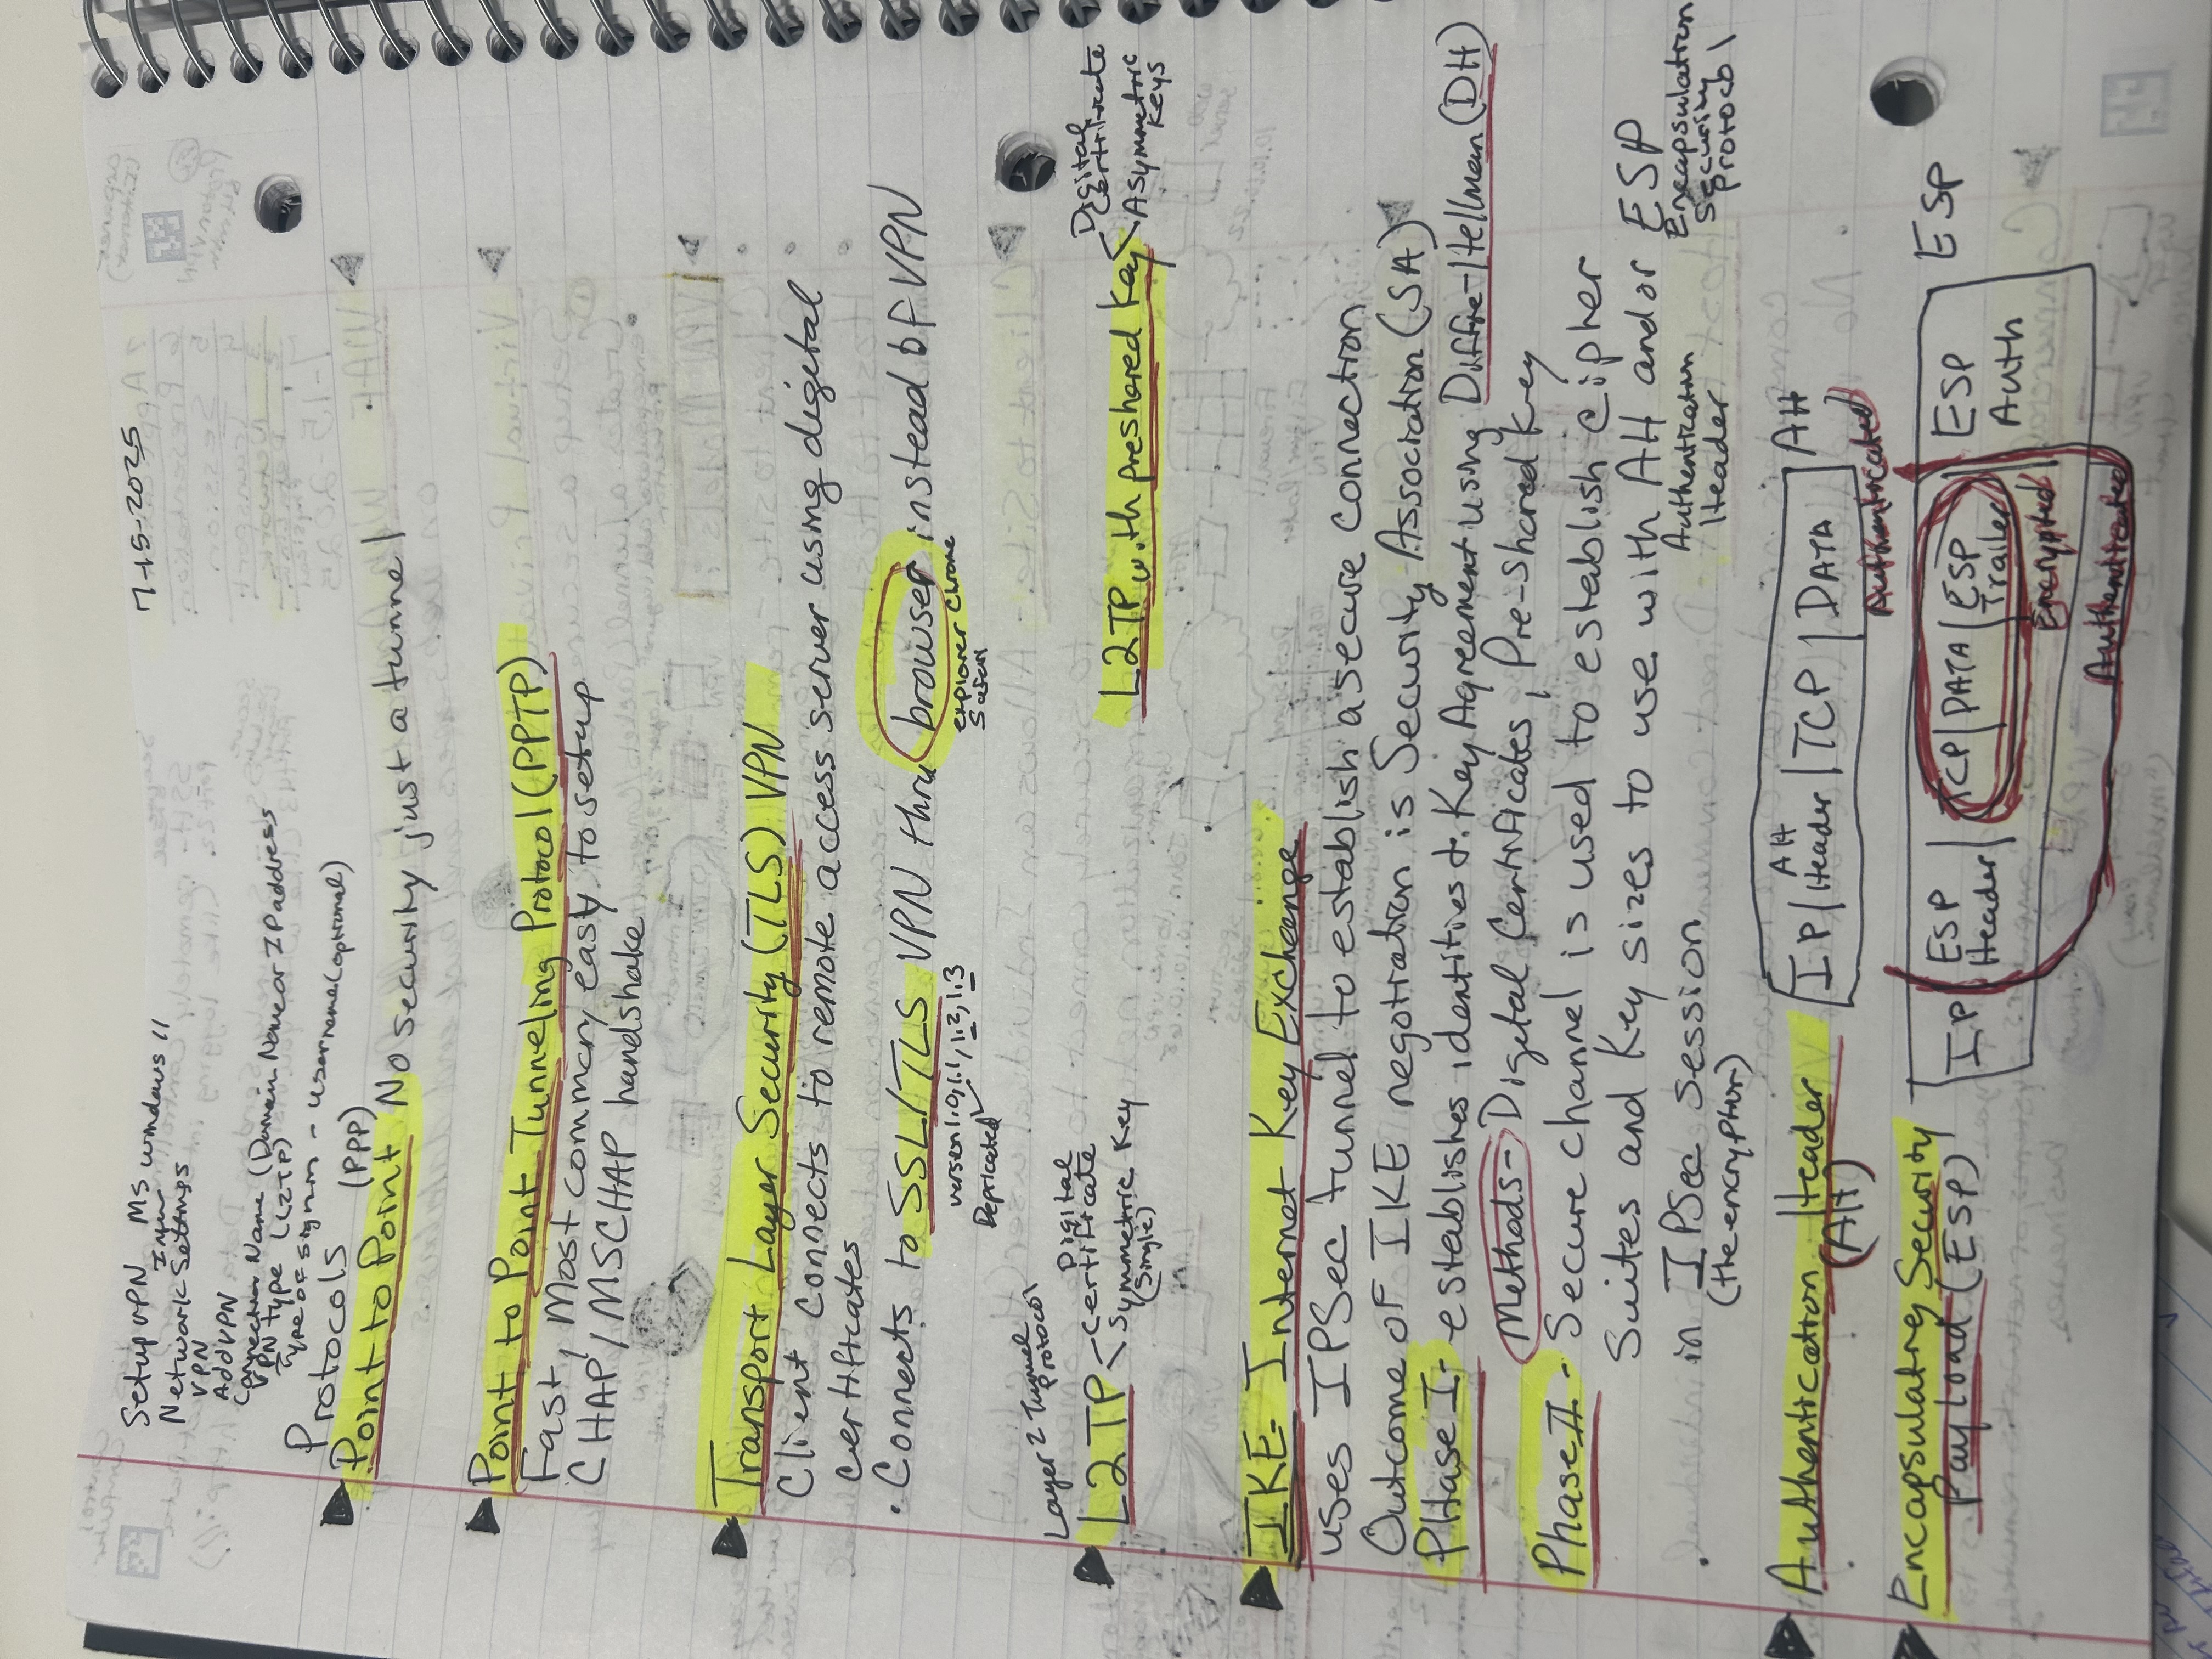 7-15-2025
Setup VPN MS windows 11
Network Settings
VPN
Add VPN
Connection Name (Domain Name or IP address
VPN type (L2TP)
Type of signin - username (optional)
Protocols
(PPP)
Point to Point No security just a tunnel
Point to Point Tunneling Protocol (PPTP)
Fast, Most common, easy to setup
CHAP/MSCHAP handshake
Transport Layer Security (TLS) VPN
Client connects to remote access server using digital
certificates
• Connects to SSL/TLS VPN thru browser instead of VPN
version 1.0, 1.1, 1.2, 1.3
explorer Chrome
Depricated
Safari
Layer 2 Tunnel
Protocol
L2TP
Digital
Certificate
Symmetric Key
(Single)
L2TP with preshared key
Digital
Certificate
Asymmetric
Keys
IKE - Internet Key Exchange
uses IPSec tunnel to establish a secure connection
Outcome of IKE negotiation is Security Association (SA)
PHase I - establishes identities & Key Agreement using Diffie-Hellman (DH)
Methods - Digital Certificates, Pre-shared key
Phase II - Secure channel is used to establish cipher
Suites and Key sizes to use with AH and/or ESP
in IPSec session
(the encryption)
Authentication
Header
Encapsulation
Security
Protocol
Authentication Header
(AH)
IP | AH Header | TCP | DATA
AH
Authenticated
Encapsulating Security
Payload (ESP)
IP | ESP Header | TCP | DATA | ESP Trailer | ESP Auth
ESP
Encrypted
Authenticated